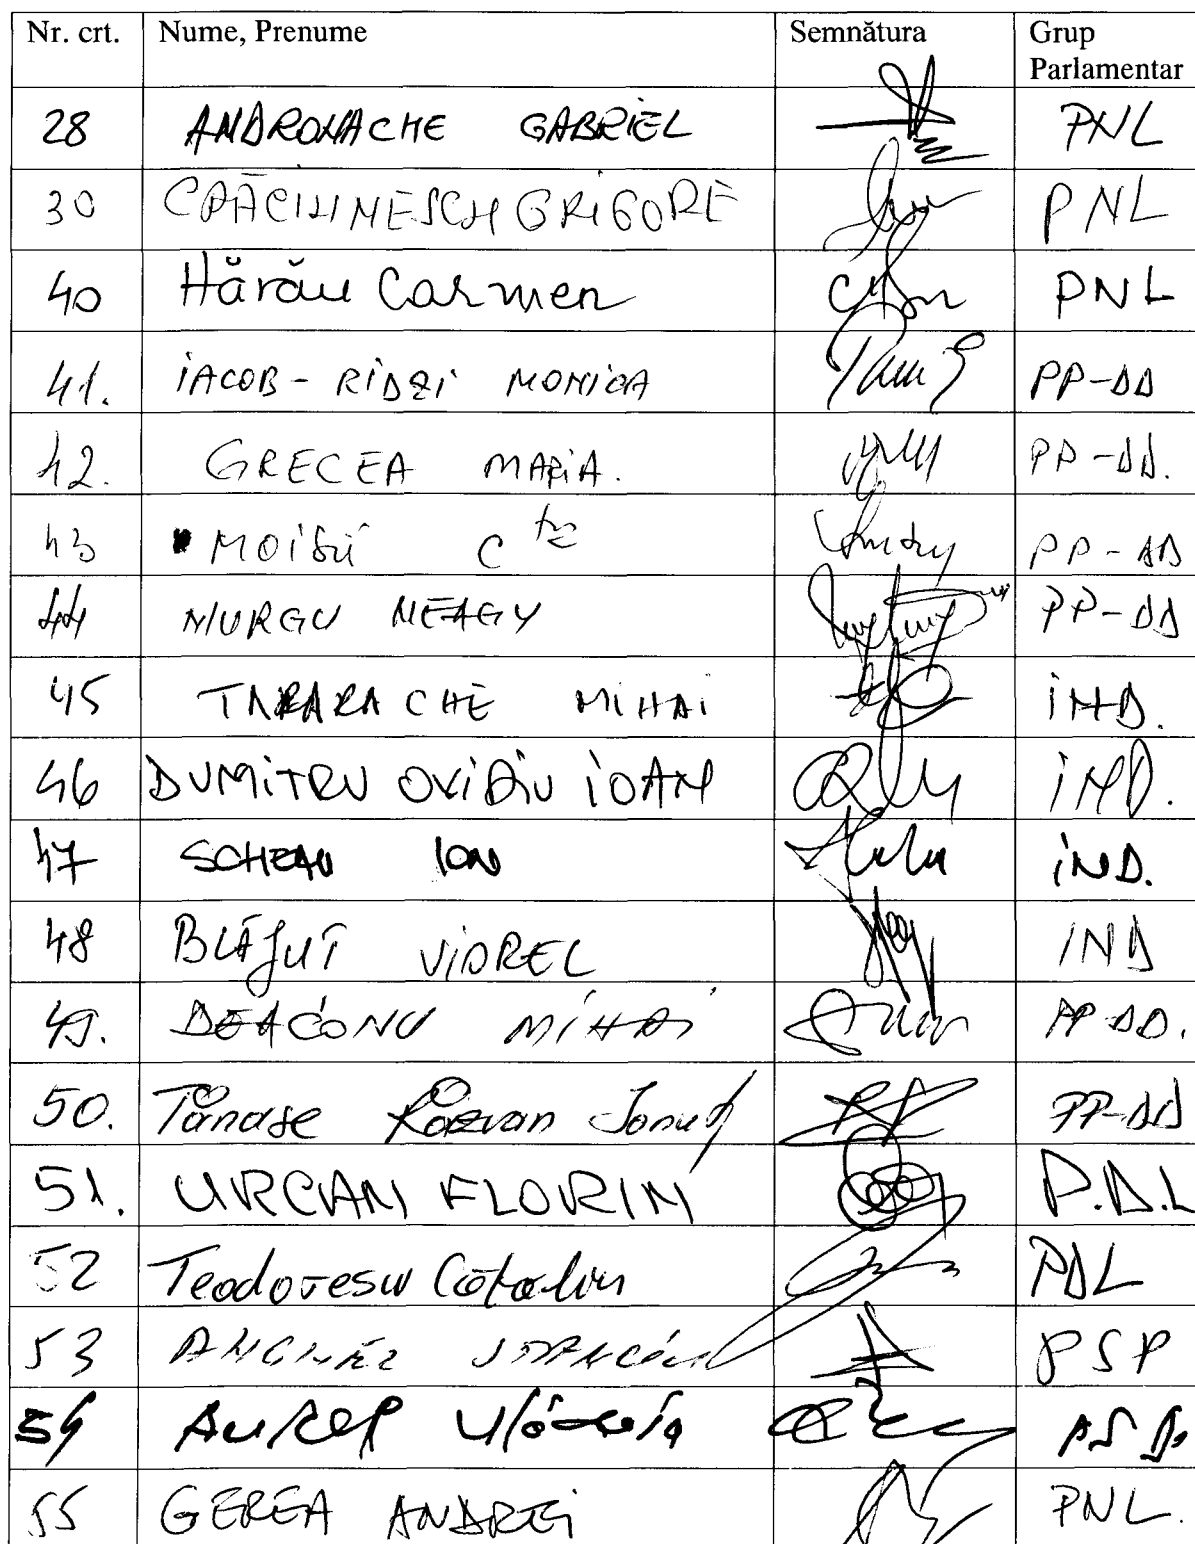 Nr. crt. Nume, Prenume Semnătura Grup Parlamentar
28 ANDRONACHE GABRIEL PNL
30 CRĂCIUNESCU GRIGORE PNL
40 Hărău Carmen PNL
41. IACOB-RIDZI MONICA PP-DD
42. GRECEA MARIA. PP-DD.
43 MOISII C PP-DD
44 NEAGU PP-DD
45 TARARACHE MIHAI IND.
46 DUMITRU OVIDIU IOAN IND.
47 SCHEAU ION IND.
48 BLĂJUȚ VIOREL IND
49. DEACONU MIHAI PP-DD.
50. Tănase Răzvan Ionuț PP-DD
51. URCAN FLORIN P.D.L
52 Teodorescu Cătălin PDL
53 PSD
54 AUREL VLĂDOIU PSD.
55 GEREA ANDREI PNL.